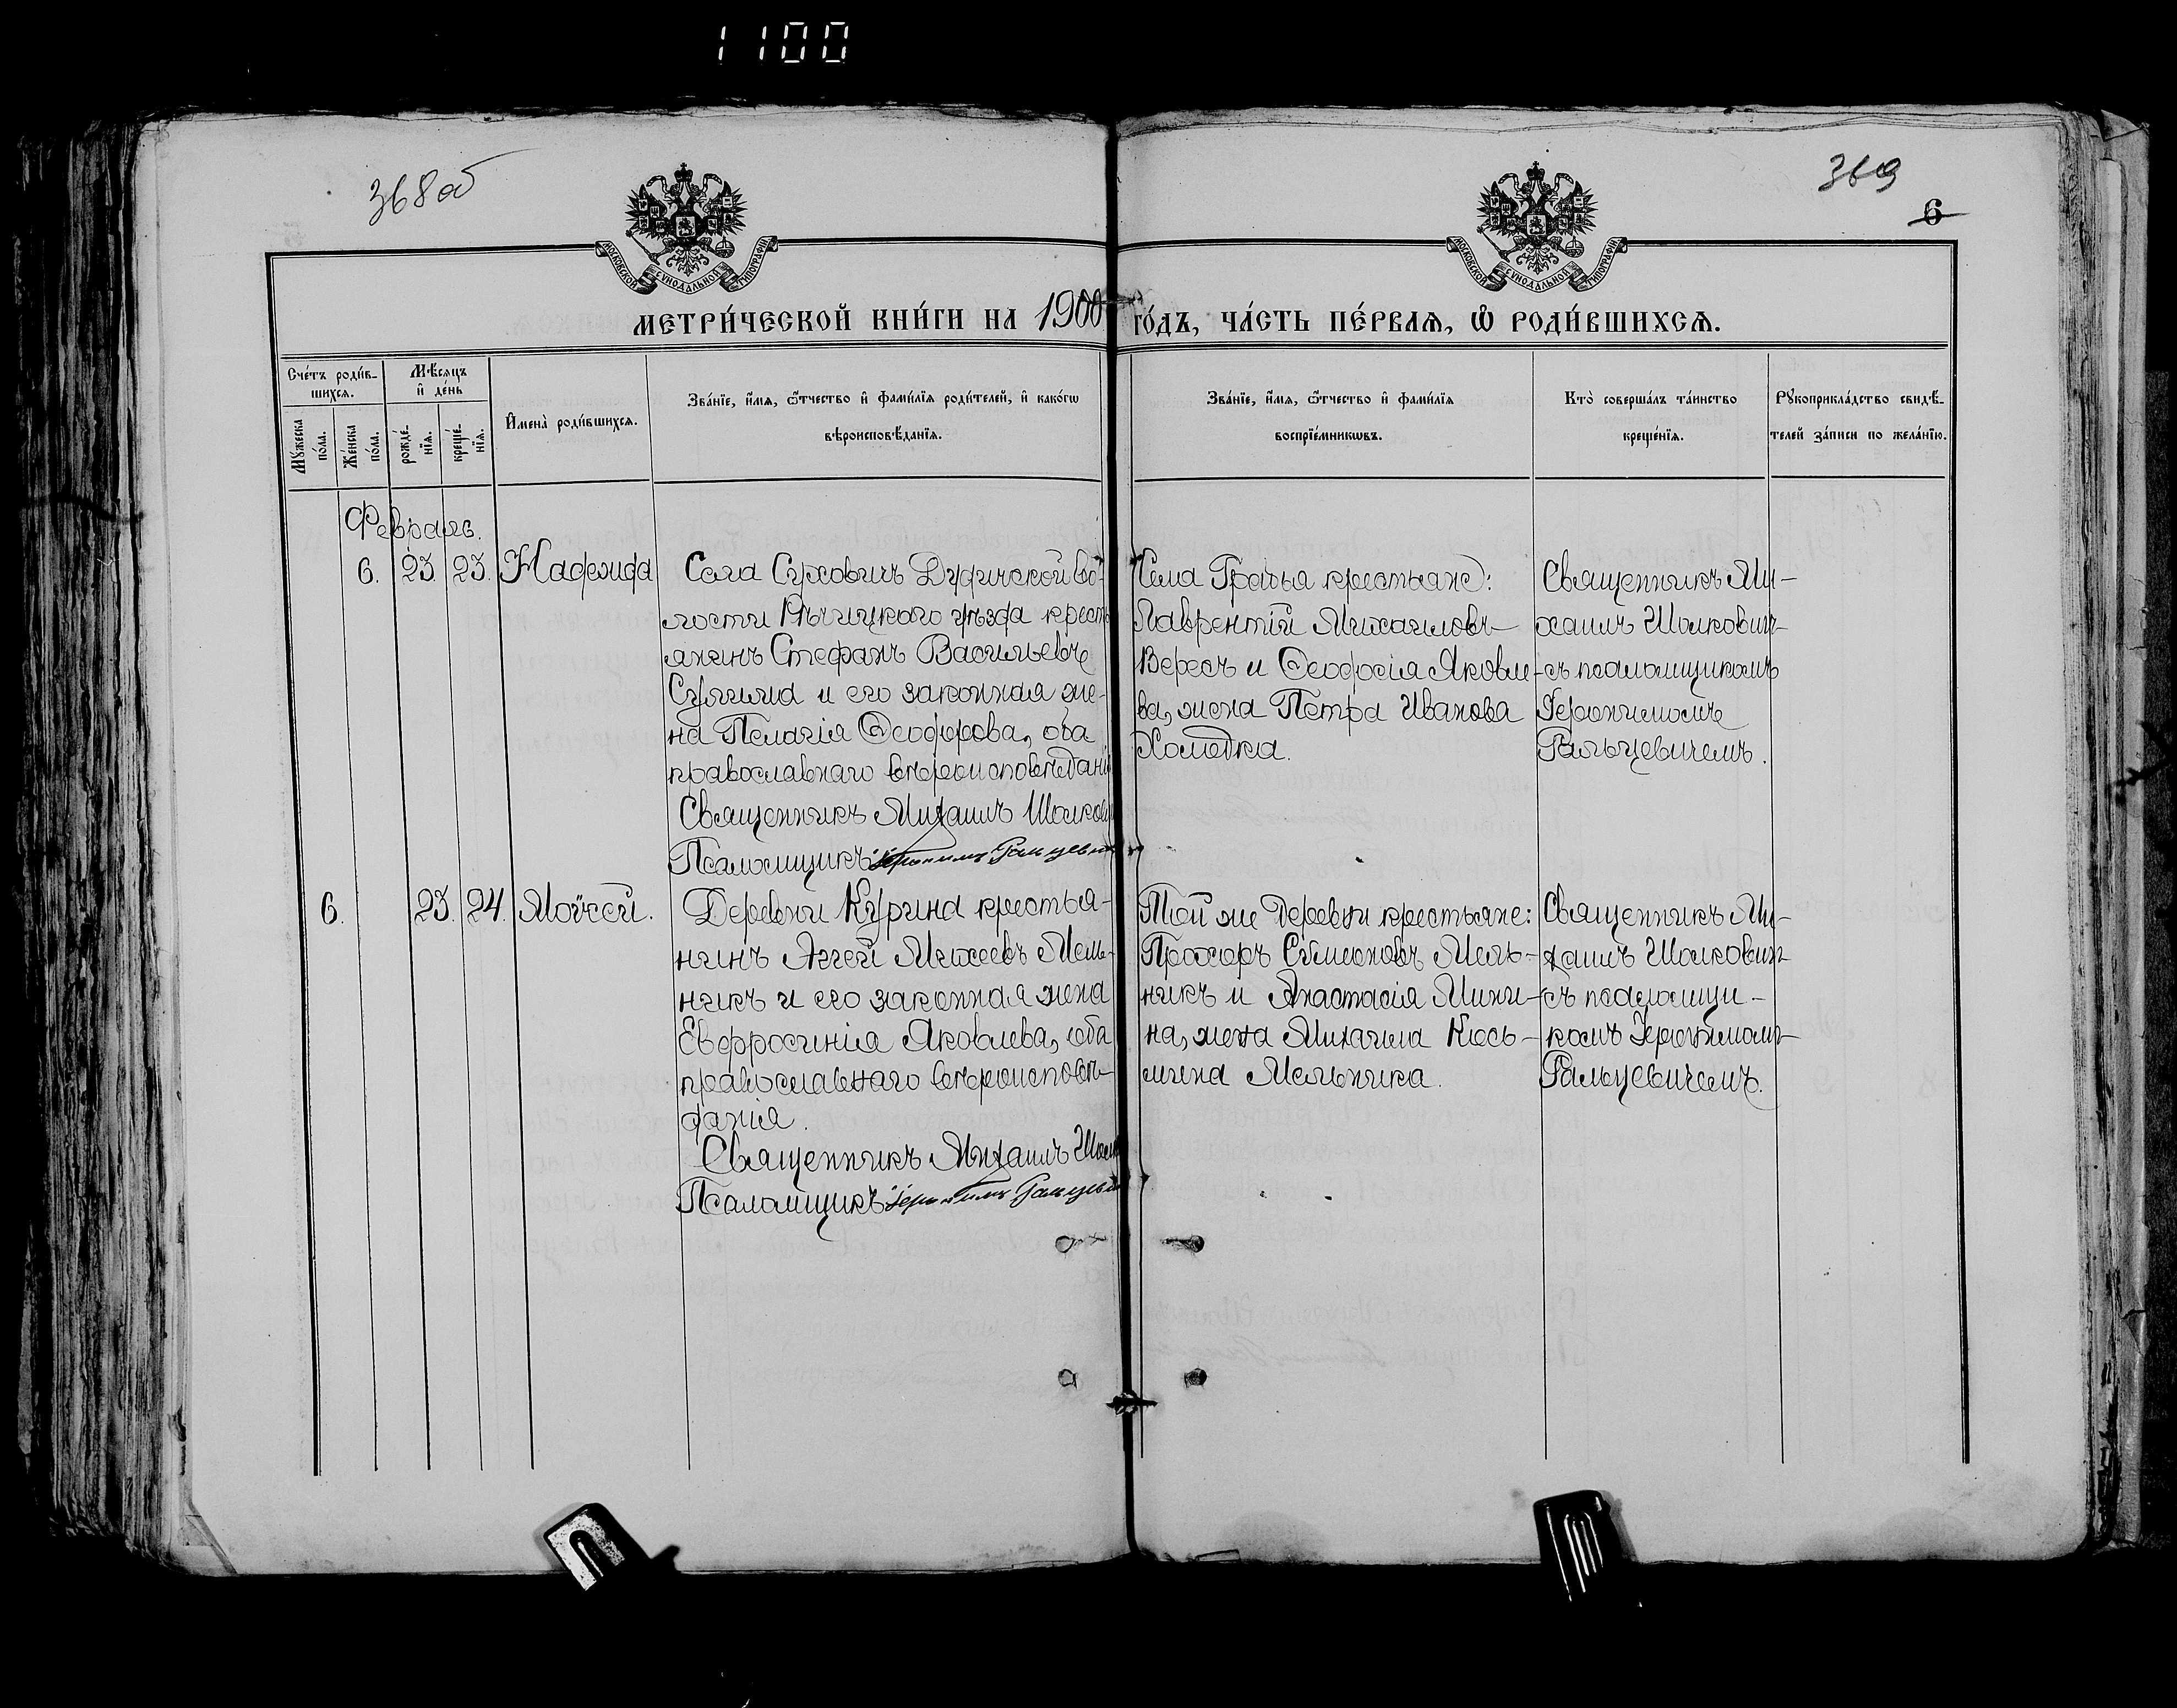 1100
368об
369
6
МОСКОВСКОЙ СУНОДАЛЬНОЙ ТИПОГРАФІИ
МОСКОВСКОЙ СУНОДАЛЬНОЙ ТИПОГРАФІИ
МЕТРИ́ЧЕСКОЙ КНИ́ГИ НА 1900 ГО́ДЪ, ЧА́СТЬ ПЕ́РВАѦ, Ѡ҆ РОДИ́ВШИХСѦ.
Сче́тъ роди́в-
шихсѧ.
Мѣ́сѧцъ
и҆ де́нь
Мꙋ́жеска
по́ла.
Же́нска
по́ла.
рожде́-
нїѧ.
креще́-
нїѧ.
И҆мена̀ роди́вшихсѧ.
Зва́нїе, и҆́мѧ, ѻ҆́тчество и҆ фами́лїѧ роди́телей, и҆ како́гѡ
вѣроисповѣ́данїѧ.
Зва́нїе, и҆́мѧ, ѻ҆́тчество и҆ фами́лїѧ
воспрїе́мникѡвъ.
Кто̀ соверша́лъ та́инство
креще́нїѧ.
Рꙋкоприкла́дство свидѣ́-
телей за́писи по жела́нїю.
Февраль.
6. 23. 23. Надежда
Села Суховичъ Дудичской во-
лости Рѣчицкаго уѣзда кресть
янинъ Стефанъ Васильевъ
и его законная же-
на Пелагія Ѳеодорова, оба
православнаго вѣроисповѣдані
Священникъ Михаилъ Шолков
Псаломщикъ Іеронимъ Гальцеви
Села крестьяне:
Лаврентій Михаиловъ
Вересъ и Ѳеодосія Яковле-
ва, жена Петра Иванова
Хомедка.
Священникъ Ми-
хаилъ Шолкович
съ псаломщикомъ
Іеронимомъ
Гальцевичемъ.
6. 23. 24. Моѵсей.
Деревни Курина крестья-
нинъ Аггей Михеевъ Мель-
никъ и его законная жена
Евфросинія Яковлева, оба
православнаго вѣроисповѣ-
данія.
Священникъ Михаилъ Шолк
Псаломщикъ Іеронимъ Гальцеви
Той же деревни крестьяне:
Прохоръ Сѵмеоновъ Мель-
никъ и Анастасія Мини-
на, жена Михаила Кось-
мина Мельника.
Священникъ Ми-
хаилъ Шолкович
съ псаломщи-
комъ Іеронимомъ
Гальцевичемъ.